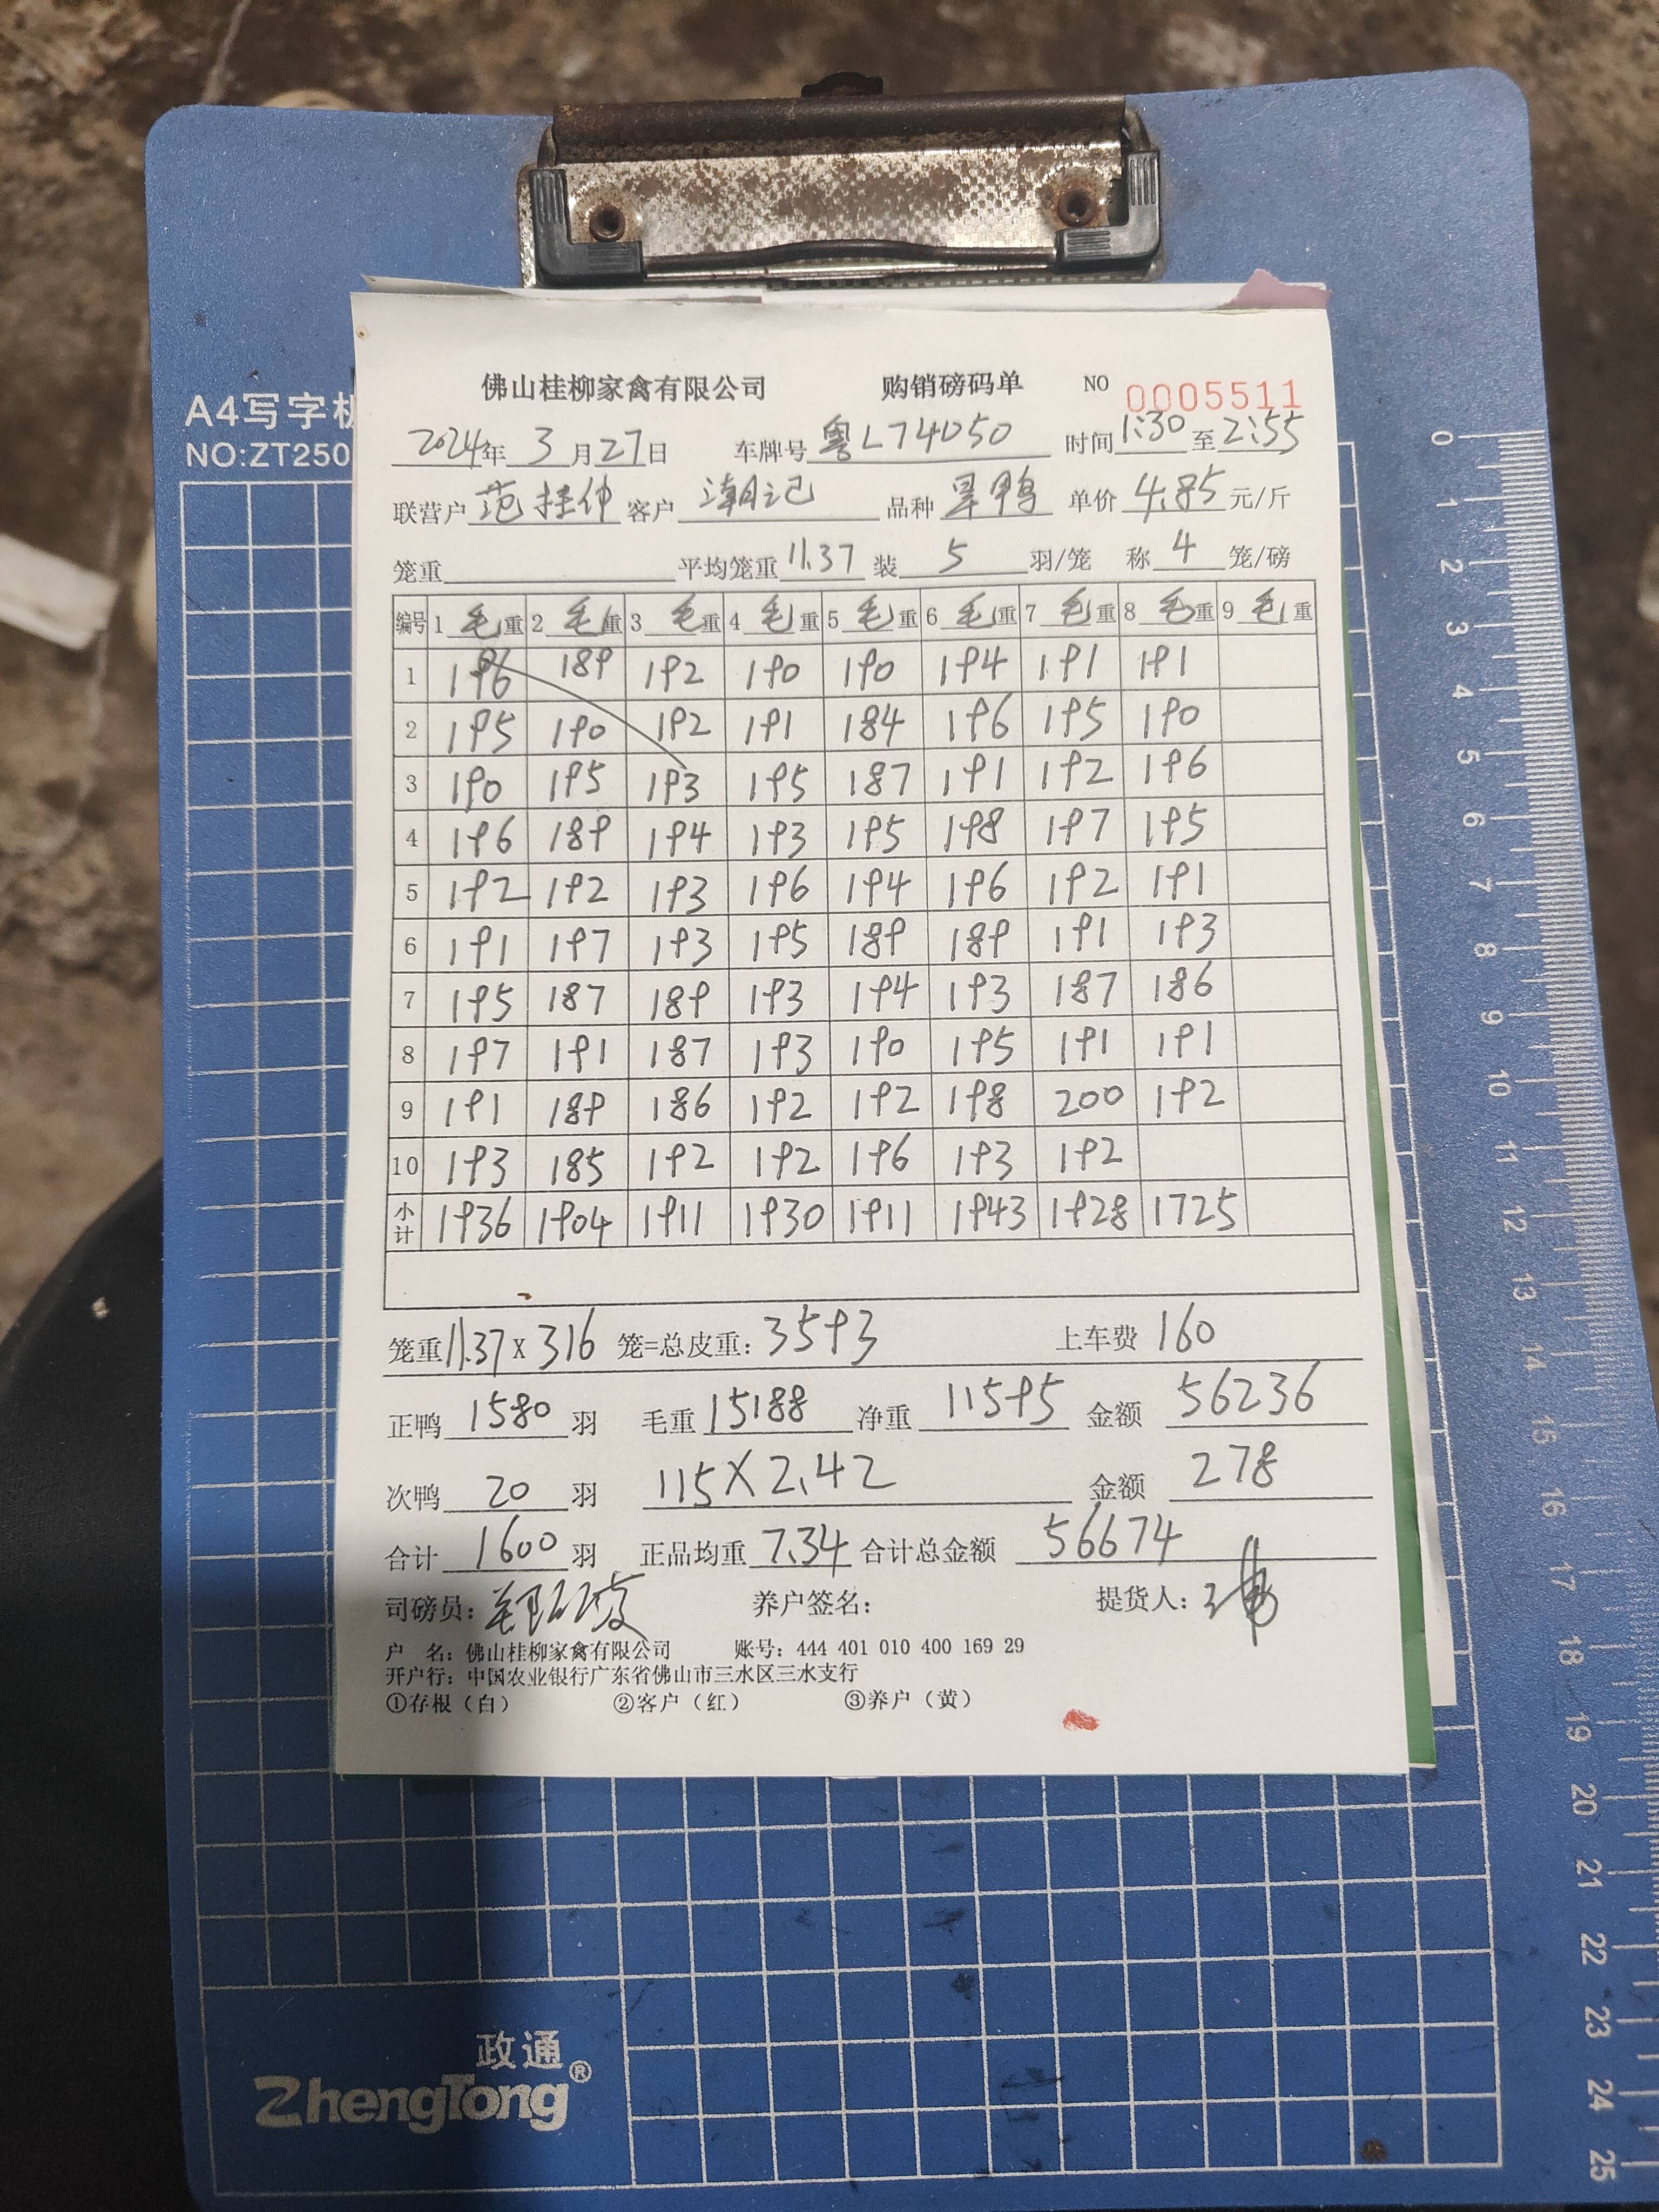 A4写字板
NO:ZT250
佛山桂柳家禽有限公司 购销磅码单 NO 0005511
2024年 3 月 27 日 车牌号 粤L74050 时间 1:30 至 2:55
联营户 范桂仲 客户 潮记 品种 旱鸭 单价 4.85 元/斤
笼重 平均笼重 11.37 装 5 羽/笼 称 4 笼/磅
编号 1 毛重 2 毛重 3 毛重 4 毛重 5 毛重 6 毛重 7 毛重 8 毛重 9 毛重
1 196 189 192 190 190 194 191 191
2 195 190 192 191 184 196 195 190
3 190 195 193 195 187 191 192 196
4 196 189 194 193 195 198 197 195
5 192 192 193 196 194 196 192 191
6 191 197 193 195 189 189 191 193
7 195 187 189 193 194 193 187 186
8 197 191 187 193 190 195 191 191
9 191 189 186 192 192 198 200 192
10 193 185 192 192 196 193 192
小计 1936 1904 1911 1930 1911 1943 1928 1725
笼重 11.37 x 316 笼=总皮重: 3593 上车费 160
正鸭 1580 羽 毛重 15188 净重 11595 金额 56236
次鸭 20 羽 115 X 2.42 金额 278
合计 1600 羽 正品均重 7.34 合计总金额 56674
司磅员: 养户签名: 提货人:
户 名: 佛山桂柳家禽有限公司 账号: 444 401 010 400 169 29
开户行: 中国农业银行广东省佛山市三水区三水支行
①存根（白） ②客户（红） ③养户（黄）
0
1
2
3
4
5
6
7
8
9
10
11
12
13
14
15
16
17
18
19
20
21
22
23
24
25
政通
ZhengTong®